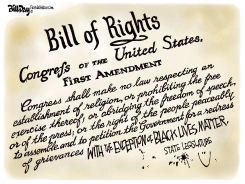 Bill of Rights
Congrefs OF THE United States.
FIRST AMENDMENT
Congress shall make no law respecting an
establishment of religion, or prohibiting the free
exercise thereof; or abridging the freedom of speech,
or of the press; or the right of the people peaceably
to assemble, and to petition the Government for a redress
of grievances WITH THE EXCEPTION of BLACK LIVES MATTER.
STATE LEGISLATORS